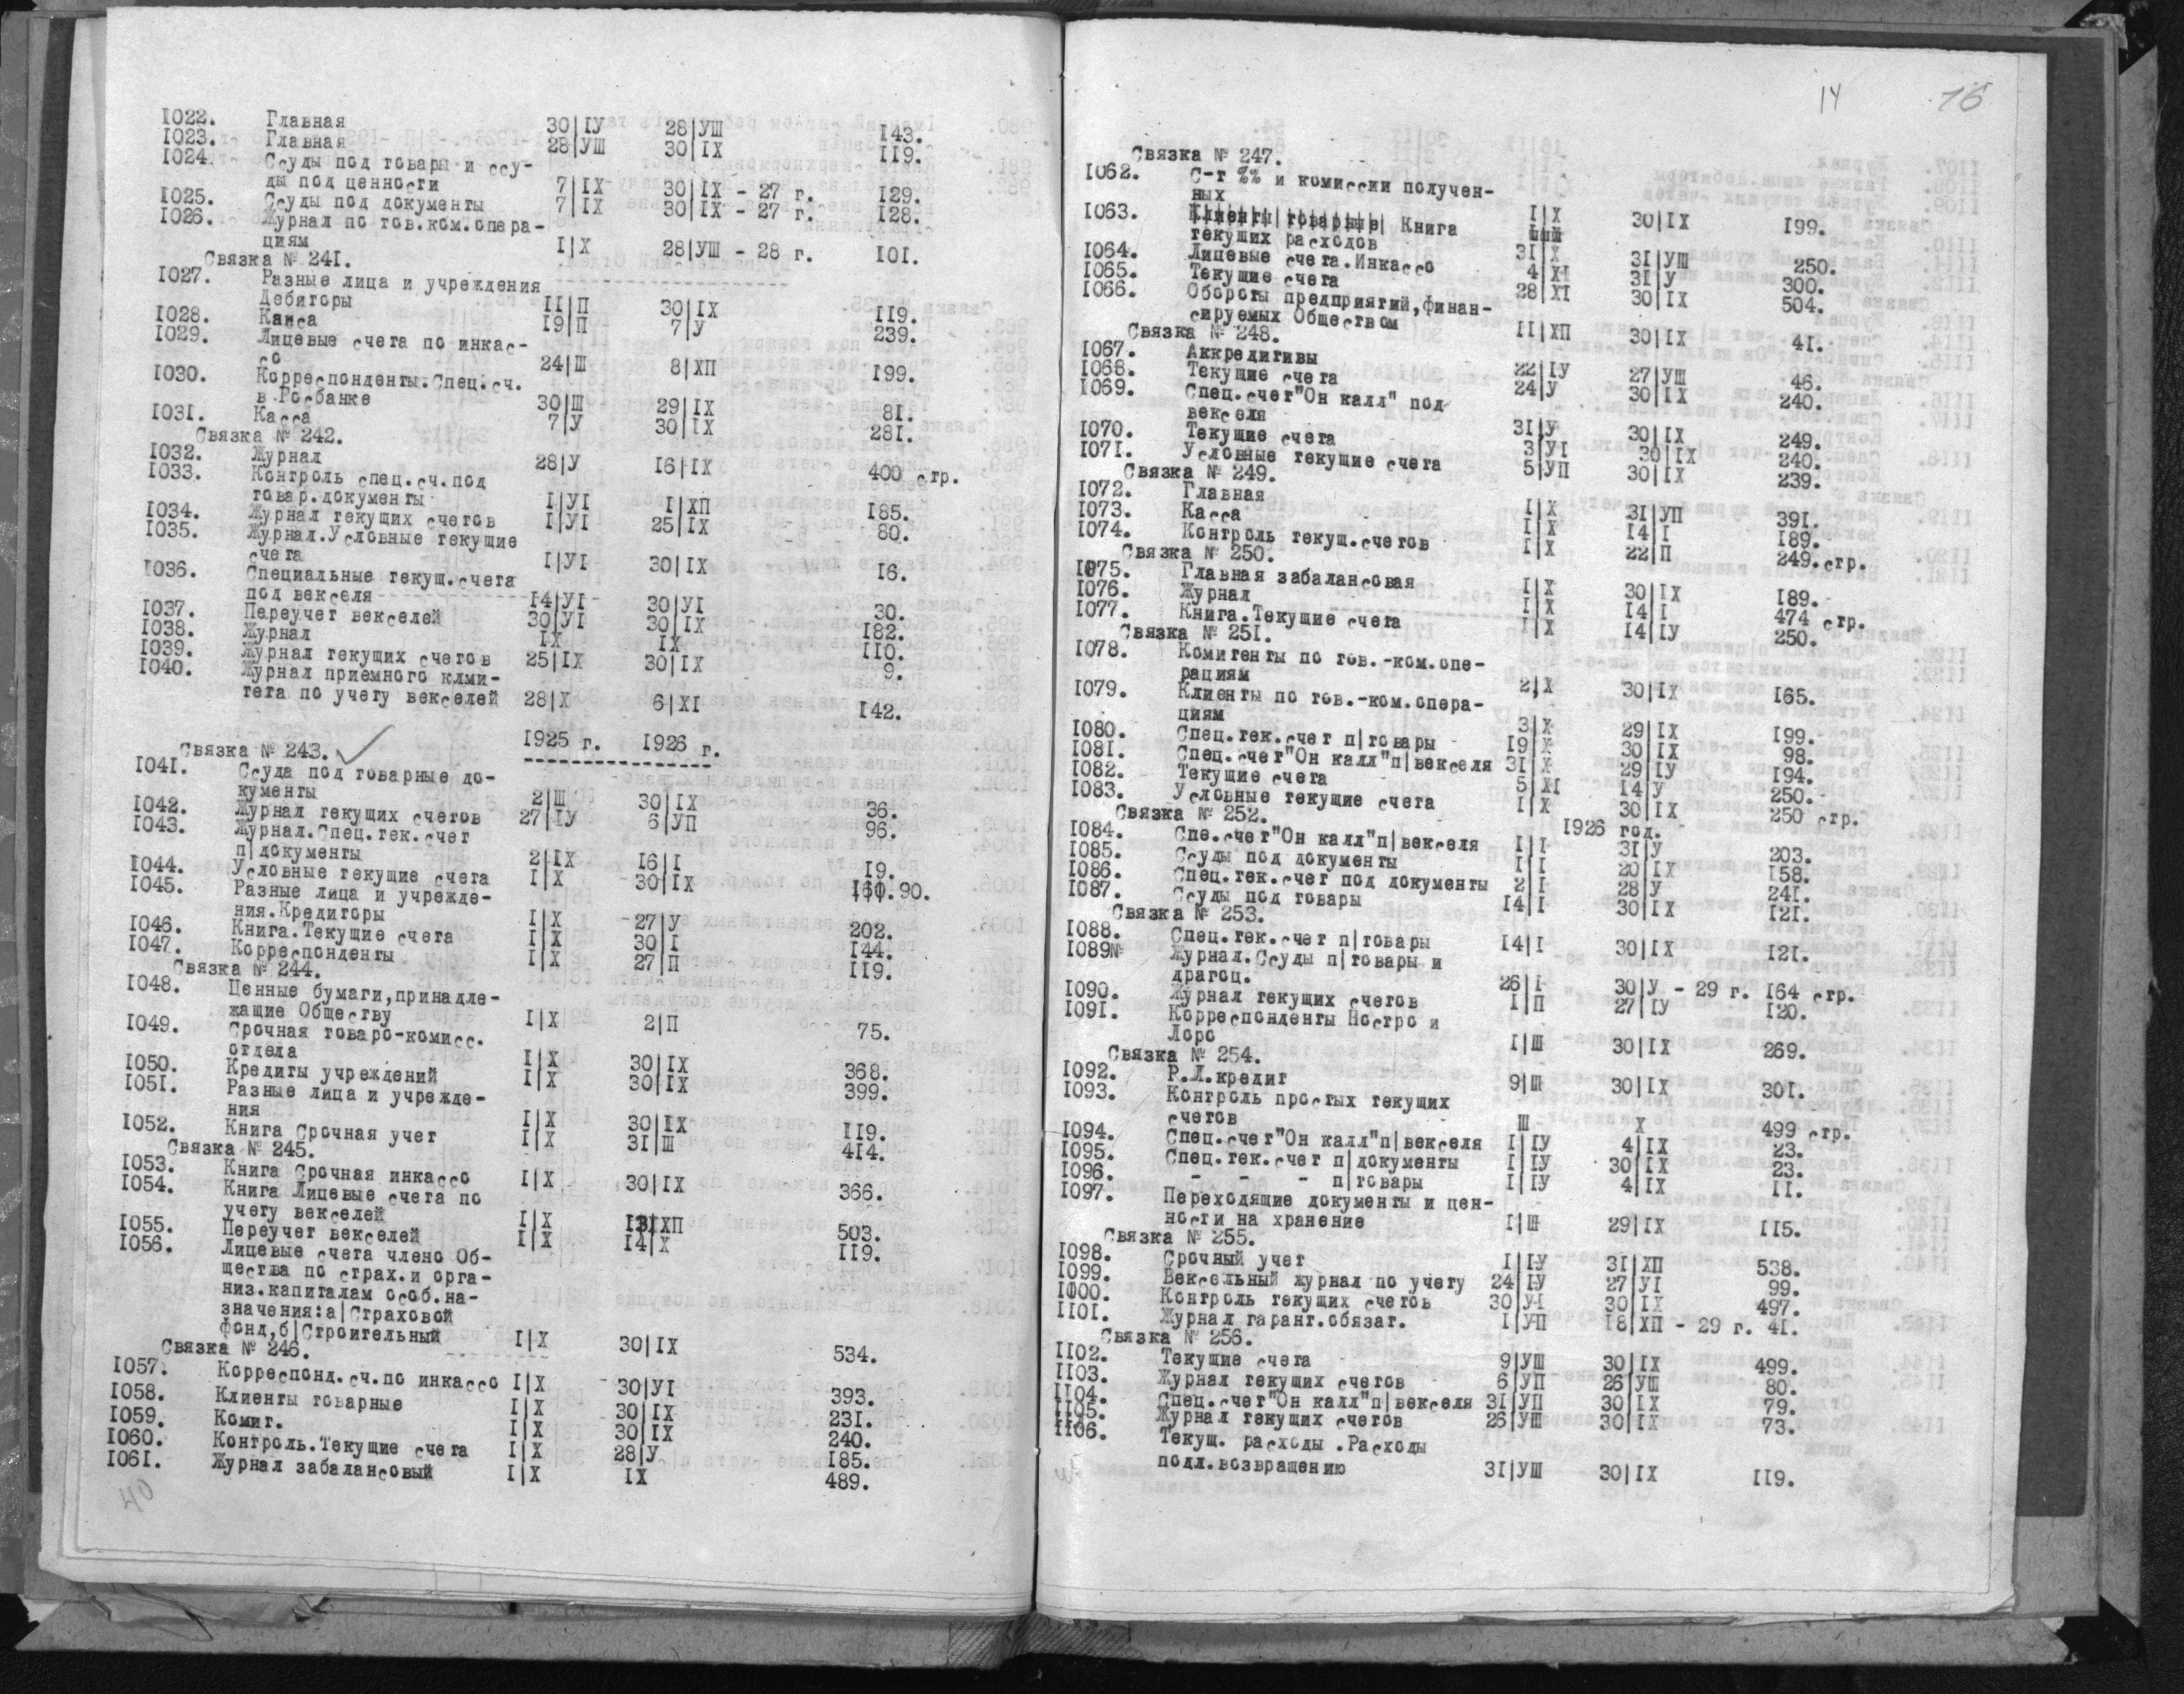 1022. Главная 30|IУ 28|УШ 143.
1023. Главная 28|УШ 30|IX 119.
1024. Ссуды под товары и ссу-
ды под ценности 7|IX 30|IX - 27 г. 129.
1025. Ссуды под документы 7|IX 30|IX - 27 г. 128.
1026. Журнал по тов.ком.опера-
циям I|X 28|УШ - 28 г. 101.
Связка № 241.
1027. Разные лица и учреждения
Дебиторы 11|П 30|IX 119.
1028. Касса 19|П 7|У 239.
1029. Лицевые счета по инкас-
со 24|Ш 8|ХП 199.
1030. Корреспонденты.Спец.сч.
в Росбанке 30|Ш 29|IX 81.
1031. Касса 7|У 30|IX 281.
Связка № 242.
1032. Журнал 28|У 16|IX 400 стр.
1033. Контроль спец.сч.под
товар.документы I|УI I|ХП 185.
1034. Журнал текущих счетов I|УI 25|IX 80.
1035. Журнал.Условные текущие
счета I|УI 30|IX 16.
1036. Специальные текущ.счета
под векселя 14|УI 30|УI 30.
1037. Переучет векселей 30|УI 30|IX 182.
1038. Журнал IX IX 110.
1039. Журнал текущих счетов 25|IX 30|IX 9.
1040. Журнал приемного клми-
тета по учету векселей 28|X 6|XI 142.
1925 г. 1926 г.
Связка № 243.
1041. Ссуда под товарные до-
кументы 2|Ш 30|IX 36.
1042. Журнал текущих счетов 27|IУ 6|УП 96.
1043. Журнал.Спец.тек.счет
п|документы 2|IX 16|I 19.
1044. Условные текущие счета I|X 30|IX 90.
1045. Разные лица и учрежде-
ния.Кредиторы I|X 27|У 202.
1046. Книга.Текущие счета I|X 30|I 144.
1047. Корреспонденты I|X 27|П 119.
Связка № 244.
1048. Ценные бумаги,принадле-
жащие Обществу I|X 2|П 75.
1049. Срочная товаро-комисс.
отдела I|X 30|IX 368.
1050. Кредиты учреждений I|X 30|IX 399.
1051. Разные лица и учрежде-
ния I|X 30|IX 119.
1052. Книга Срочная учет I|X 31|Ш 414.
Связка № 245.
1053. Книга Срочная инкассо I|X 30|IX 366.
1054. Книга Лицевые счета по
учету векселей I|X 31|ХП 503.
1055. Переучет векселей I|X 14|X 119.
1056. Лицевые счета члено Об-
щества по страх.и орга-
низ.капиталам особ.на-
значения:а|Страховой
фонд,б|Строительный I|X 30|IX 534.
Связка № 246.
1057. Корреспонд.сч.по инкассо I|X 30|УI 393.
1058. Клиенты товарные I|X 30|IX 231.
1059. Комит. I|X 30|IX 240.
1060. Контроль.Текущие счета I|X 28|У 185.
1061. Журнал забалансовый I|X IX 489.
40
14 16
Связка № 247.
1062. С-т %% и комиссии получен-
ных I|X 30|IX 199.
1063. Клиенты товарные Книга
текущих расходов 31|X 31|УШ 250.
1064. Лицевые счета.Инкассо 4|XI 31|У 300.
1065. Текущие счета 28|XI 30|IX 504.
1066. Обороты предприятий,финан-
сируемых Обществом 11|ХП 30|IX 41.
Связка № 248.
1067. Аккредитивы 22|IУ 27|УШ 46.
1068. Текущие счета 24|У 30|IX 240.
1069. Спец.счет"Он калл" под
векселя 31|У 30|IX 249.
1070. Текущие счета 3|УI 30|IX 240.
1071. Условные текущие счета 5|УП 30|IX 239.
Связка № 249.
1072. Главная I|X 31|УП 391.
1073. Касса I|X 14|I 189.
1074. Контроль текущ.счетов I|X 22|П 249.стр.
Связка № 250.
1075. Главная забалансовая I|X 30|IX 189.
1076. Журнал I|X 14|I 474 стр.
1077. Книга.Текущие счета I|X 14|IУ 250.
Связка № 251.
1078. Комитенты по тов.-ком.опе-
рациям 2|X 30|IX 165.
1079. Клиенты по тов.-ком.опера-
циям 3|X 29|IX 199.
1080. Спец.тек.счет п|товары 19|X 30|IX 98.
1081. Спец.счет"Он калл"п|векселя 31|X 29|IУ 194.
1082. Текущие счета 5|XI 14|У 250.
1083. Условные текущие счета I|X 30|IX 250 стр.
Связка № 252. 1926 год.
1084. Спе.счет"Он калл"п|векселя I|I 31|У 203.
1085. Ссуды под документы I|I 20|IX 158.
1086. Спец.тек.счет под документы 2|I 28|У 241.
1087. Ссуды под товары 14|I 30|IX 121.
Связка № 253.
1088. Спец.тек.счет п|товары 14|I 30|IX 121.
1089№ Журнал.Ссуды п|товары и
драгоц. 26|I 30|У - 29 г. 164 стр.
1090. Журнал текущих счетов I|П 27|IУ 120.
1091. Корреспонденты Ностро и
Лоро I|Ш 30|IX 269.
Связка № 254.
1092. Р.Л.кредит 9|Ш 30|IX 301.
1093. Контроль простых текущих
счетов Ш X 499 стр.
1094. Спец.счет"Он калл"п|векселя I|IУ 4|IX 23.
1095. Спец.тек.счет п|документы I|IУ 30|IX 23.
1096. - - - п|товары I|IУ 4|IX 11.
1097. Переходящие документы и цен-
ности на хранение I|Ш 29|IX 115.
Связка № 255.
1098. Срочный учет I|IУ 31|ХП 538.
1099. Вексельный журнал по учету 24|IУ 27|УI 99.
1000. Контроль текущих счетов 30|УI 30|IX 497.
1101. Журнал гарант.обязат. I|УП 18|ХП - 29 г. 41.
Связка № 256.
1102. Текущие счета 9|УШ 30|IX 499.
1103. Журнал текущих счетов 6|УП 26|УШ 80.
1104. Спец.счет"Он калл"п|векселя 31|УП 30|IX 79.
1105. Журнал текущих счетов 26|УШ 30|IX 73.
1106. Текущ. расходы .Расходы
подл.возвращению 31|УШ 30|IX 119.